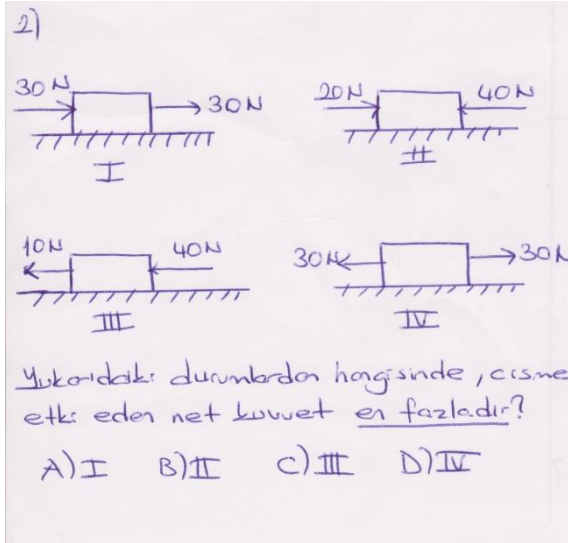 2)
30N 30N
I
20N 40N
II
10N 40N
III
30N 30N
IV
Yukarıdaki durumlardan hangisinde, cisme
etki eden net kuvvet en fazladır?
A) I B) II C) III D) IV